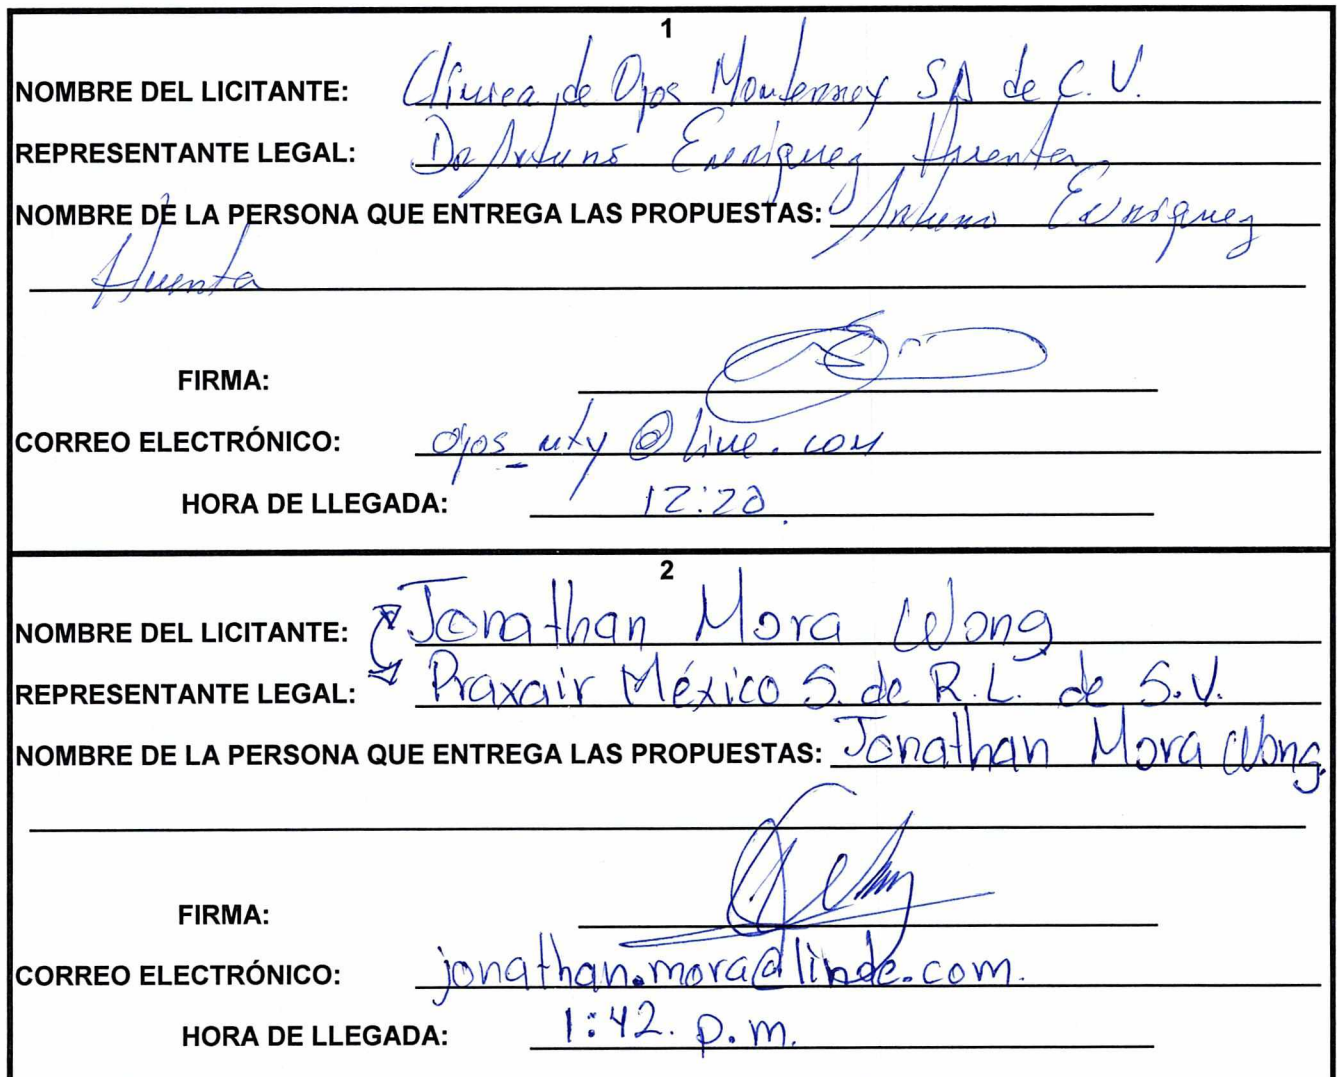 1
NOMBRE DEL LICITANTE: Clinica de Ojos Monterrey SA de C.V.
REPRESENTANTE LEGAL: Dr Arturo Enriquez Huerta
NOMBRE DE LA PERSONA QUE ENTREGA LAS PROPUESTAS: Arturo Enriquez
Huerta
FIRMA:
CORREO ELECTRÓNICO: ojos_mty@live.com
HORA DE LLEGADA: 12:20
2
NOMBRE DEL LICITANTE: Jonathan Mora Wong
REPRESENTANTE LEGAL: Praxair México S. de R.L. de S.V.
NOMBRE DE LA PERSONA QUE ENTREGA LAS PROPUESTAS: Jonathan Mora Wong.
FIRMA:
CORREO ELECTRÓNICO: jonathan.mora@linde.com.
HORA DE LLEGADA: 1:42. p.m.